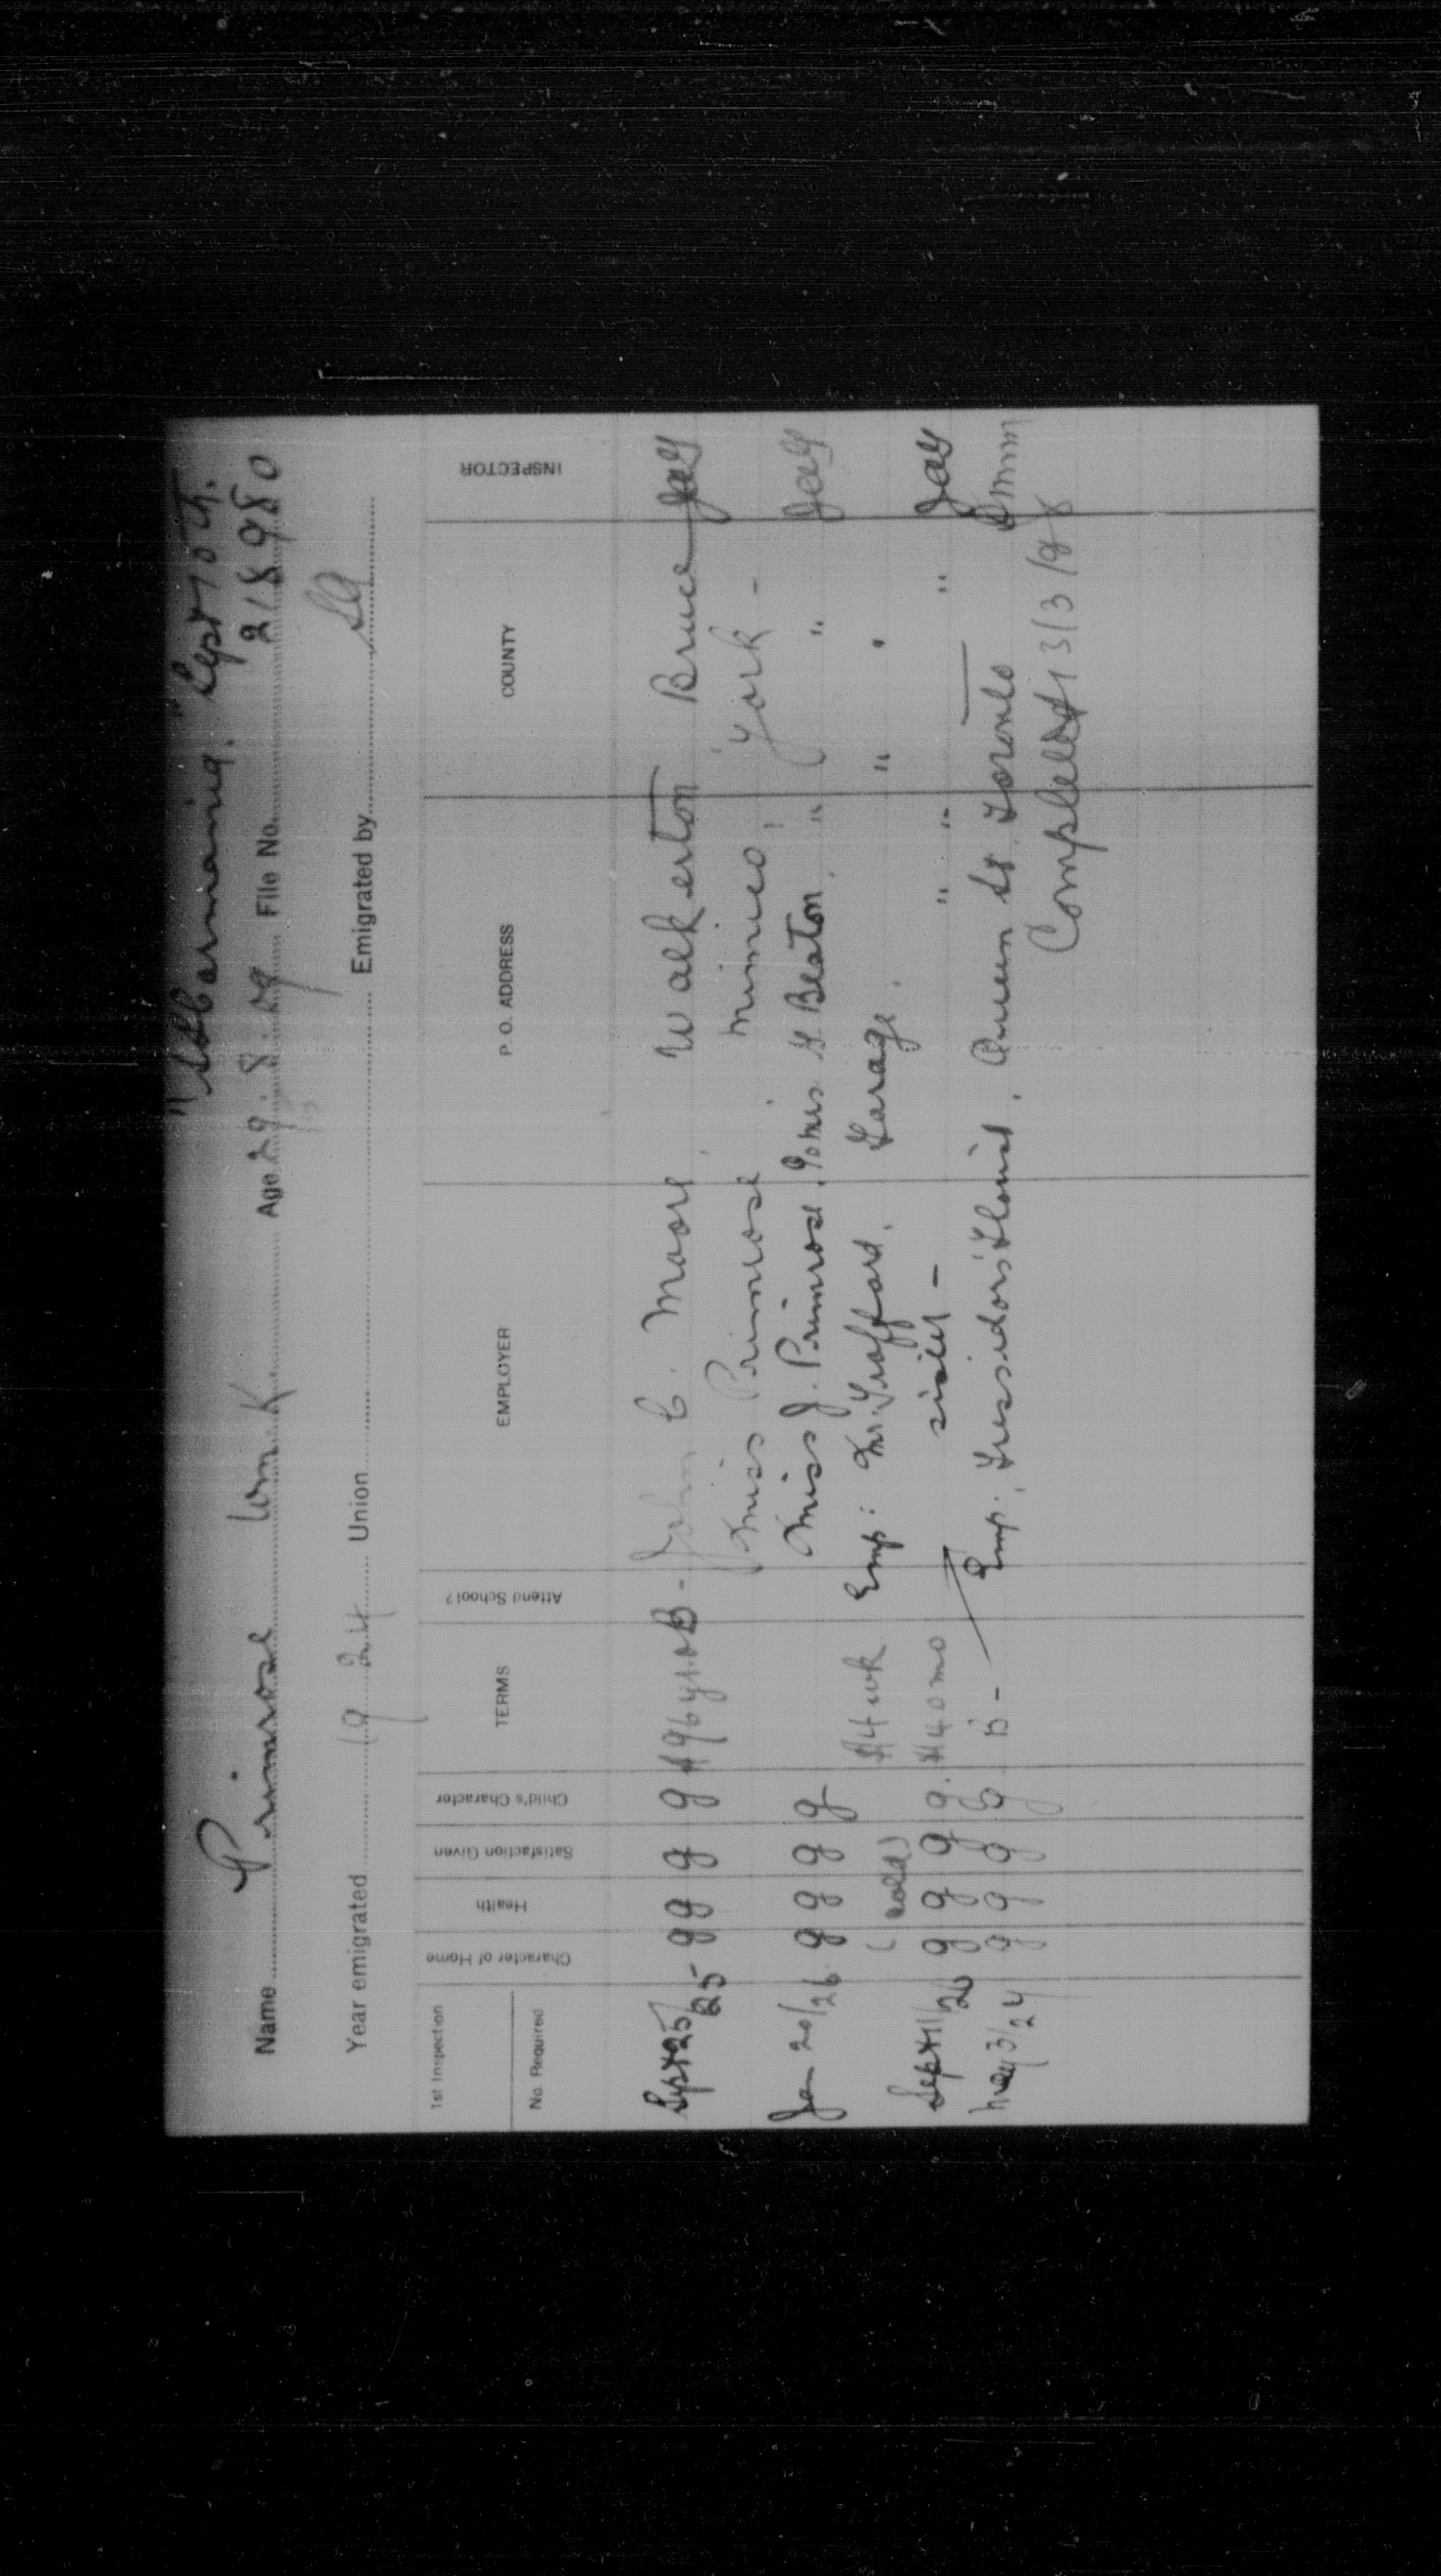 Sept 10th.
Name Primrose Wm. K Age 29.8.09 File No. 218980
Year emigrated 1924 Union Emigrated by SA
1st Inspection
No. Required
Character of Home
Health
Satisfaction Given
Child's Character
TERMS
Attend School?
EMPLOYER
P. O. ADDRESS
COUNTY
INSPECTOR
Sept 25/25 g g g g $96 yr. B - John C. Moore, Walkerton Bruce
Miss Primrose, Mimico, York -
Jan 20/26 g g g g Miss J. Primrose, Beaton, " "
(cold) $4 wk Emp: Mr. Trafford, Garage, " "
Sept 11/26 g g g g. $40 mo sister - " " "
May 3/27 g g g g Emp., Florist, Queen St. Toronto
Completed 13/3/28